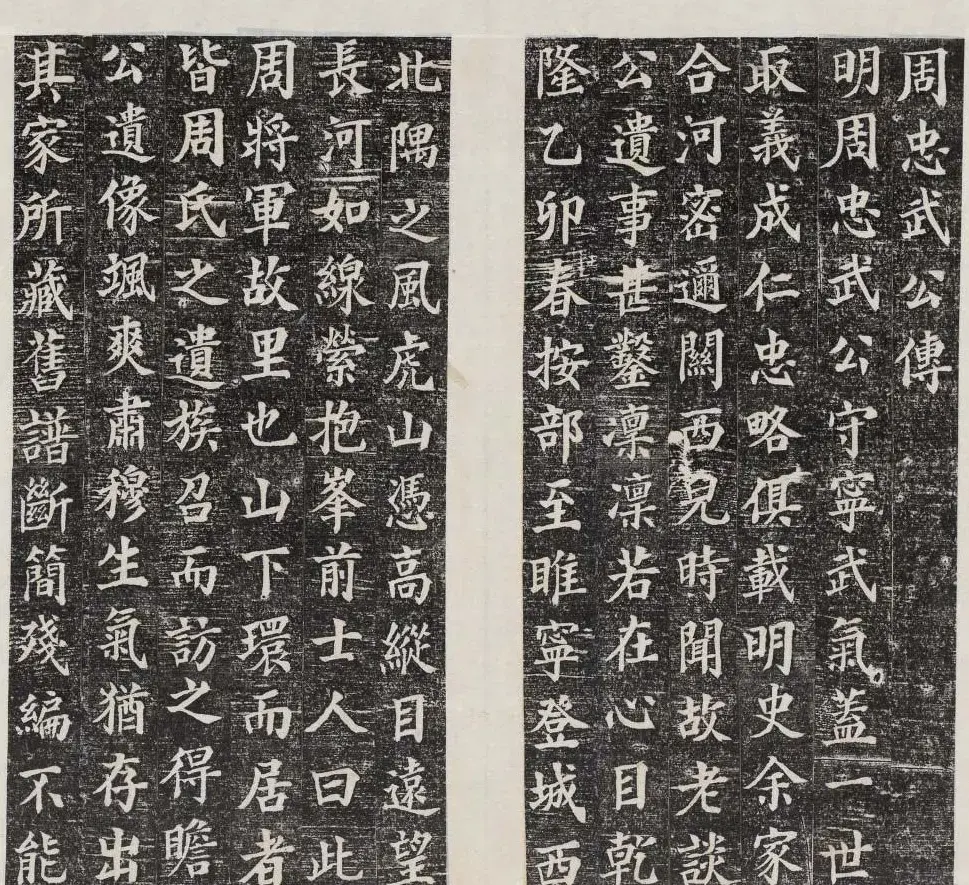 周忠武公傳
明周忠武公守寧武氣蓋一世
取義成仁忠略俱載明史余家
合河密邇關西兒時聞故老談
公遺事甚鑿凛凛若在心目乾
隆乙卯春按部至睢寧登城西
北隅之風虎山憑高縱目遠望
長河如線縈抱峯前士人曰此
周將軍故里也山下環而居者
皆周氏之遺族召而訪之得瞻
公遺像颯爽肅穆生氣猶存出
其家所藏舊譜斷簡殘編不能